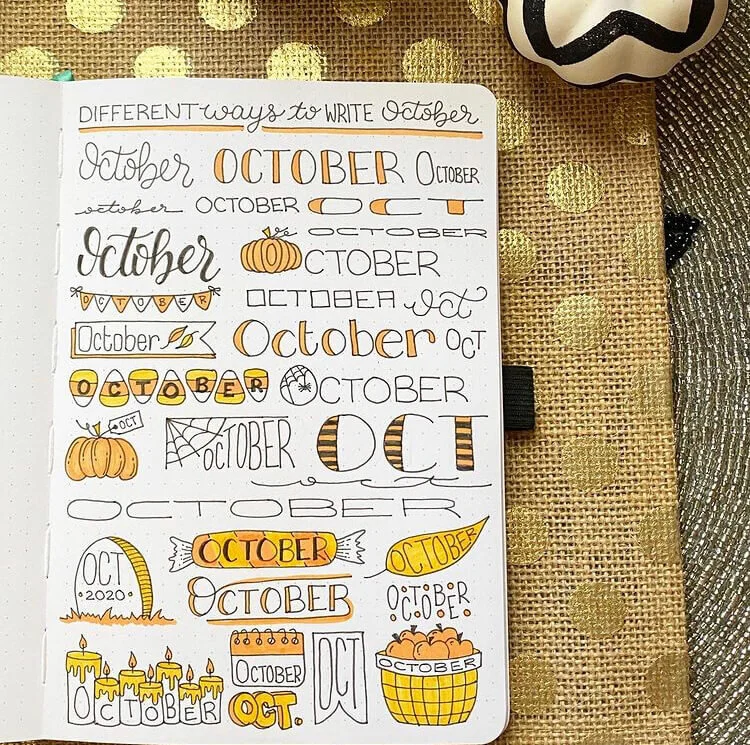 DIFFERENT ways to WRITE October
October OCTOBER OCTOBER
october OCTOBER OCT
October OCTOBER
OCTOBER
OCTOBER OCTOBER Oct
October October OCT
OCTOBER OCTOBER
OCT OCTOBER OCT
oct
OCTOBER
OCT 2020 OCTOBER OCTOBER
OCTOBER OCTOBER
OCTOBER OCTOBER OCT OCTOBER
OCT.